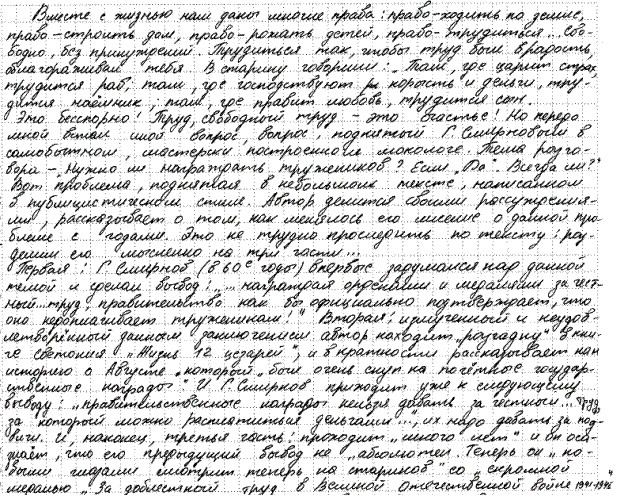 Вместе с жизнью нам даны многие права: право-ходить по земле,
право-строить дом, право-рожать детей, право-трудиться... Сво-
бодно, без принуждений. Трудиться так, чтобы труд был в радость,
облагораживал тебя. В старину говорили: "Там, где царит страх,
трудится раб; там, где господствуют корысть и деньги, тру-
дится наёмник; там, где правит любовь, трудится сын.
Это бесспорно! Труд, свободный труд - это счастье! Но передо
мной встал иной вопрос, вопрос, поднятый Г. Смирновым в
самобытном, мастерски построенном монологе. Тема разго-
вора - Нужно ли награждать тружеников? Если "Да". Всегда ли?"
Вот проблема, поднятая в небольшом тексте, написанном
в публицистическом стиле. Автор делится своими рассуждения-
ми, рассказывает о том, как менялось его мнение о данной про
блеме с годами. Это не трудно проследить по тексту: раз-
делим его мысленно на три части...
Первая: Г. Смирнов (в 60е годы) впервые задумался над данной
темой и сделал вывод: "...награждая орденами и медалями за чест-
ный... труд, правительство как бы официально подтверждает, что
оно недоплачивает труженикам!" Вторая: измученный и неудов-
летворённый данным заключением автор находит "разгадку" в кни-
ге Светония "Жизнь 12 цезарей", и в кратности рассказывает нам
историю о Августе "который" был очень скуп на почётные государ-
ственные награды" И Г. Смирнов приходит уже к следующему
выводу: "правительственные награды нельзя давать за честный... труд,
за который можно расплатиться деньгами...", их надо давать за под
виги. И, наконец, третья часть: проходит "много лет" и он осо-
знаёт, что его предыдущий вывод не "абсолютен. Теперь он "но-
выми глазами смотрит теперь на стариков" со "скромной
медалью "За доблестный труд в Великой Отечественной войне 1941-1945"